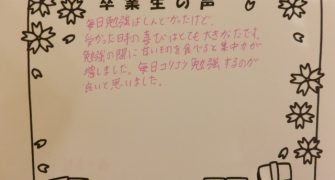 卒業生の声
毎日勉強はしんどかったけど、
受かった時の喜びはとても大きかったです。
勉強の間に甘いものを食べると集中力が
増しました。毎日コツコツ勉強するのが
良いと思いました。